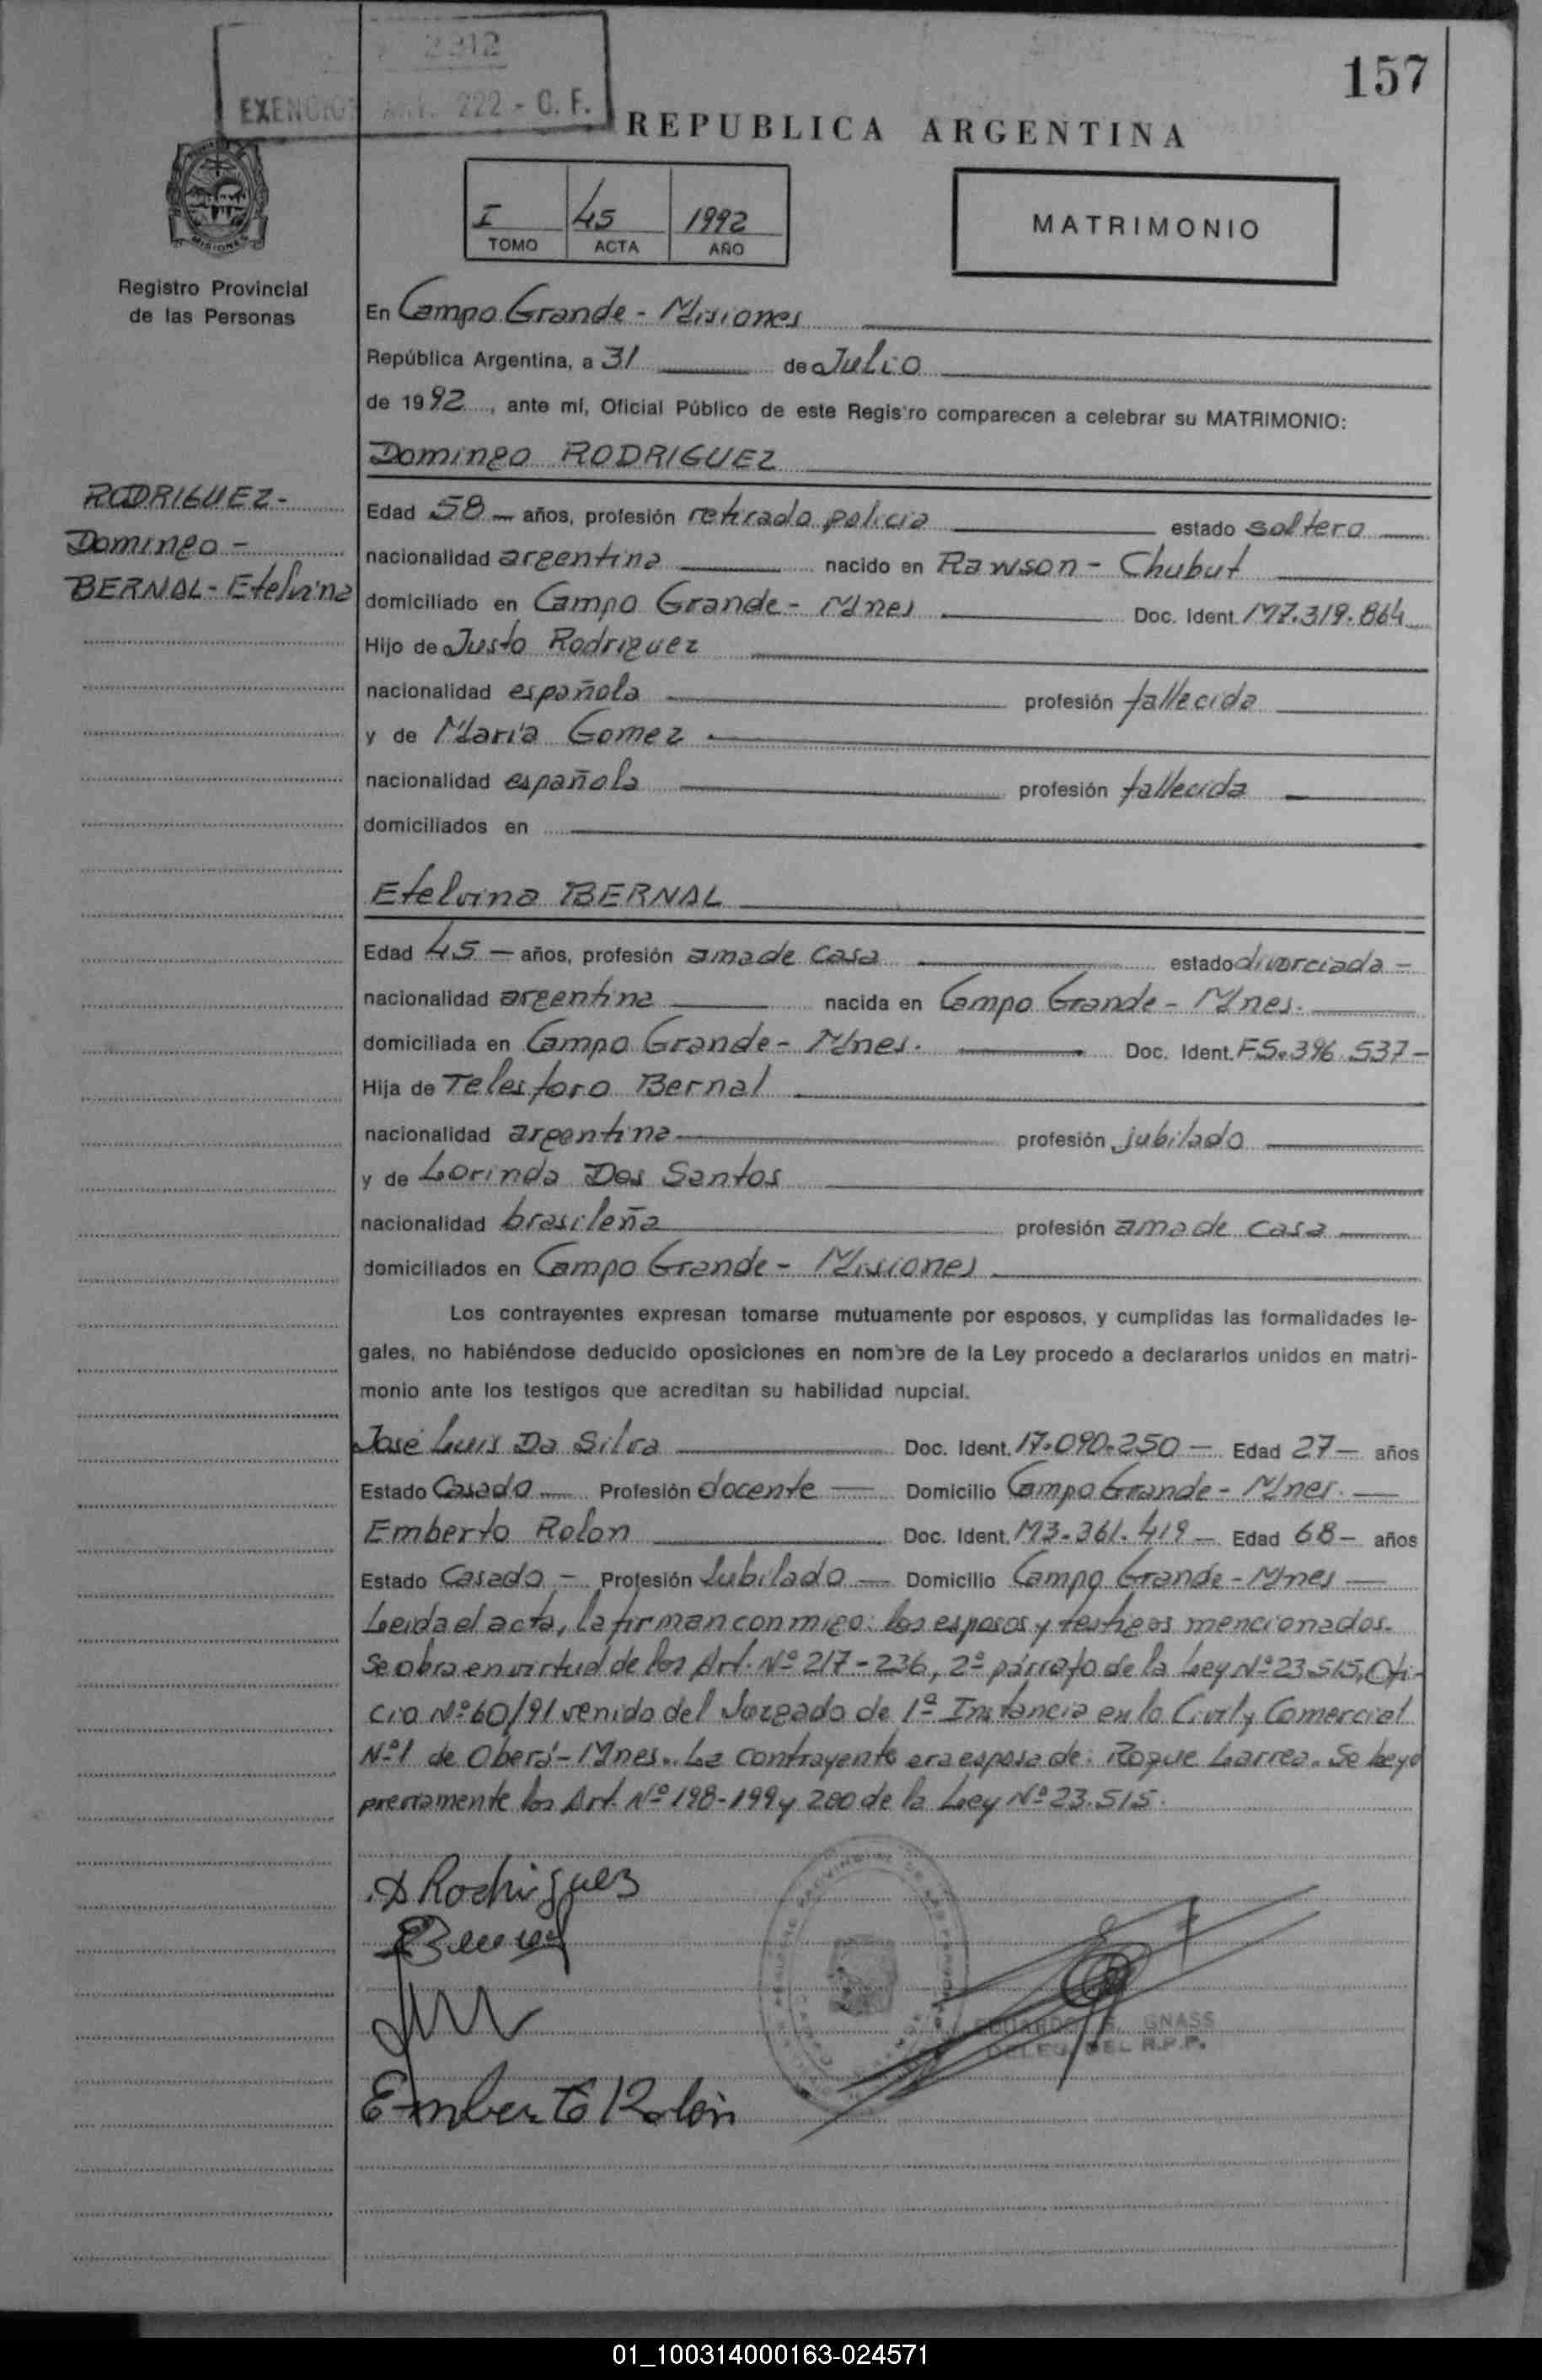 2212
157
EXENCION Art. 222 - C. F.
REPUBLICA ARGENTINA
I 45 1992
TOMO ACTA AÑO
MATRIMONIO
MISIONES
Registro Provincial
de las Personas
En Campo Grande - Misiones
República Argentina, a 31 de Julio
de 1992, ante mí, Oficial Público de este Registro comparecen a celebrar su MATRIMONIO:
Domingo RODRIGUEZ
RODRIGUEZ-
Domingo -
BERNAL - Etelvina
Edad 58 - años, profesión retirado policia estado soltero
nacionalidad argentina nacido en Rawson - Chubut
domiciliado en Campo Grande - Mnes Doc. Ident. M7.319.864
Hijo de Justo Rodriguez
nacionalidad española profesión fallecido
y de Maria Gomez
nacionalidad española profesión fallecida
domiciliados en
Etelvina BERNAL
Edad 45 - años, profesión ama de casa estado divorciada -
nacionalidad argentina nacida en Campo Grande - Mnes.
domiciliada en Campo Grande - Mnes. Doc. Ident. F5.396.537-
Hija de Telesforo Bernal
nacionalidad argentina profesión jubilado
y de Lorinda Dos Santos
nacionalidad brasileña profesión ama de casa
domiciliados en Campo Grande - Misiones
Los contrayentes expresan tomarse mutuamente por esposos, y cumplidas las formalidades le-
gales, no habiéndose deducido oposiciones en nombre de la Ley procedo a declararlos unidos en matri-
monio ante los testigos que acreditan su habilidad nupcial.
José Luis Da Silva Doc. Ident. 17.090.250 - Edad 27 - años
Estado Casado - Profesión docente - Domicilio Campo Grande - Mnes. -
Emberto Rolon Doc. Ident. M3.361.419 - Edad 68 - años
Estado Casado - Profesión Jubilado - Domicilio Campo Grande - Mnes -
Leida el acta, la firman conmigo: los esposos y testigos mencionados.
Se obra en virtud de los Art. Nº 217-236, 2º párrafo de la Ley Nº 23.515, Ofi-
cio Nº 60/91 venido del Juzgado de 1ª Instancia en lo Civil y Comercial
Nº1 de Oberá - Mnes. La contrayente era esposa de: Roque Larrea. Se leyó
previamente los Art. Nº 198-199 y 200 de la Ley Nº 23.515.
D Rodriguez
EBernal
Emberto Rolón
EDUARDO GNASS
DELEG. DEL R.P.P.
01_100314000163-024571